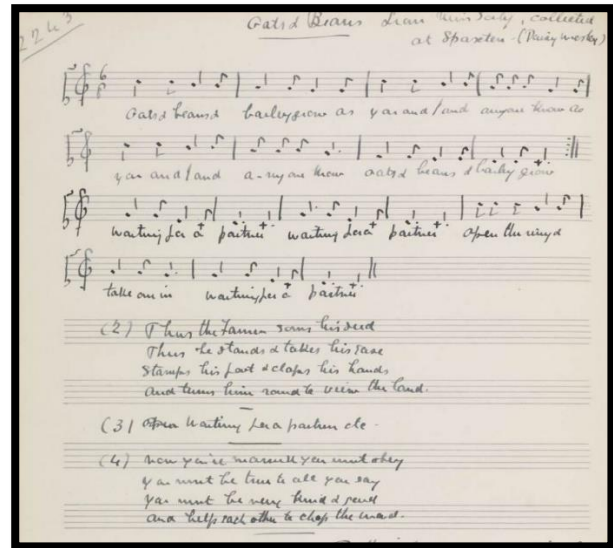 2243
Oats & Beans from Miss Doty, collected
at Spaxton - (Daisy Wesley)
Oats & beans & barley grow as you and I and anyone know as
you and I and a-nyone know oats & beans & barley grow
waiting for a partner waiting for a partner open the ring &
take one in waiting for a partner
(2) Thus the Farmer sows his seed
Thus he stands & takes his ease
Stamps his foot & claps his hands
and turns him round to view the land.
(3) Waiting for a partner etc.
(4) Now you're married you must obey
you must be true to all you say
you must be very kind & good
and help each other to chop the wood.